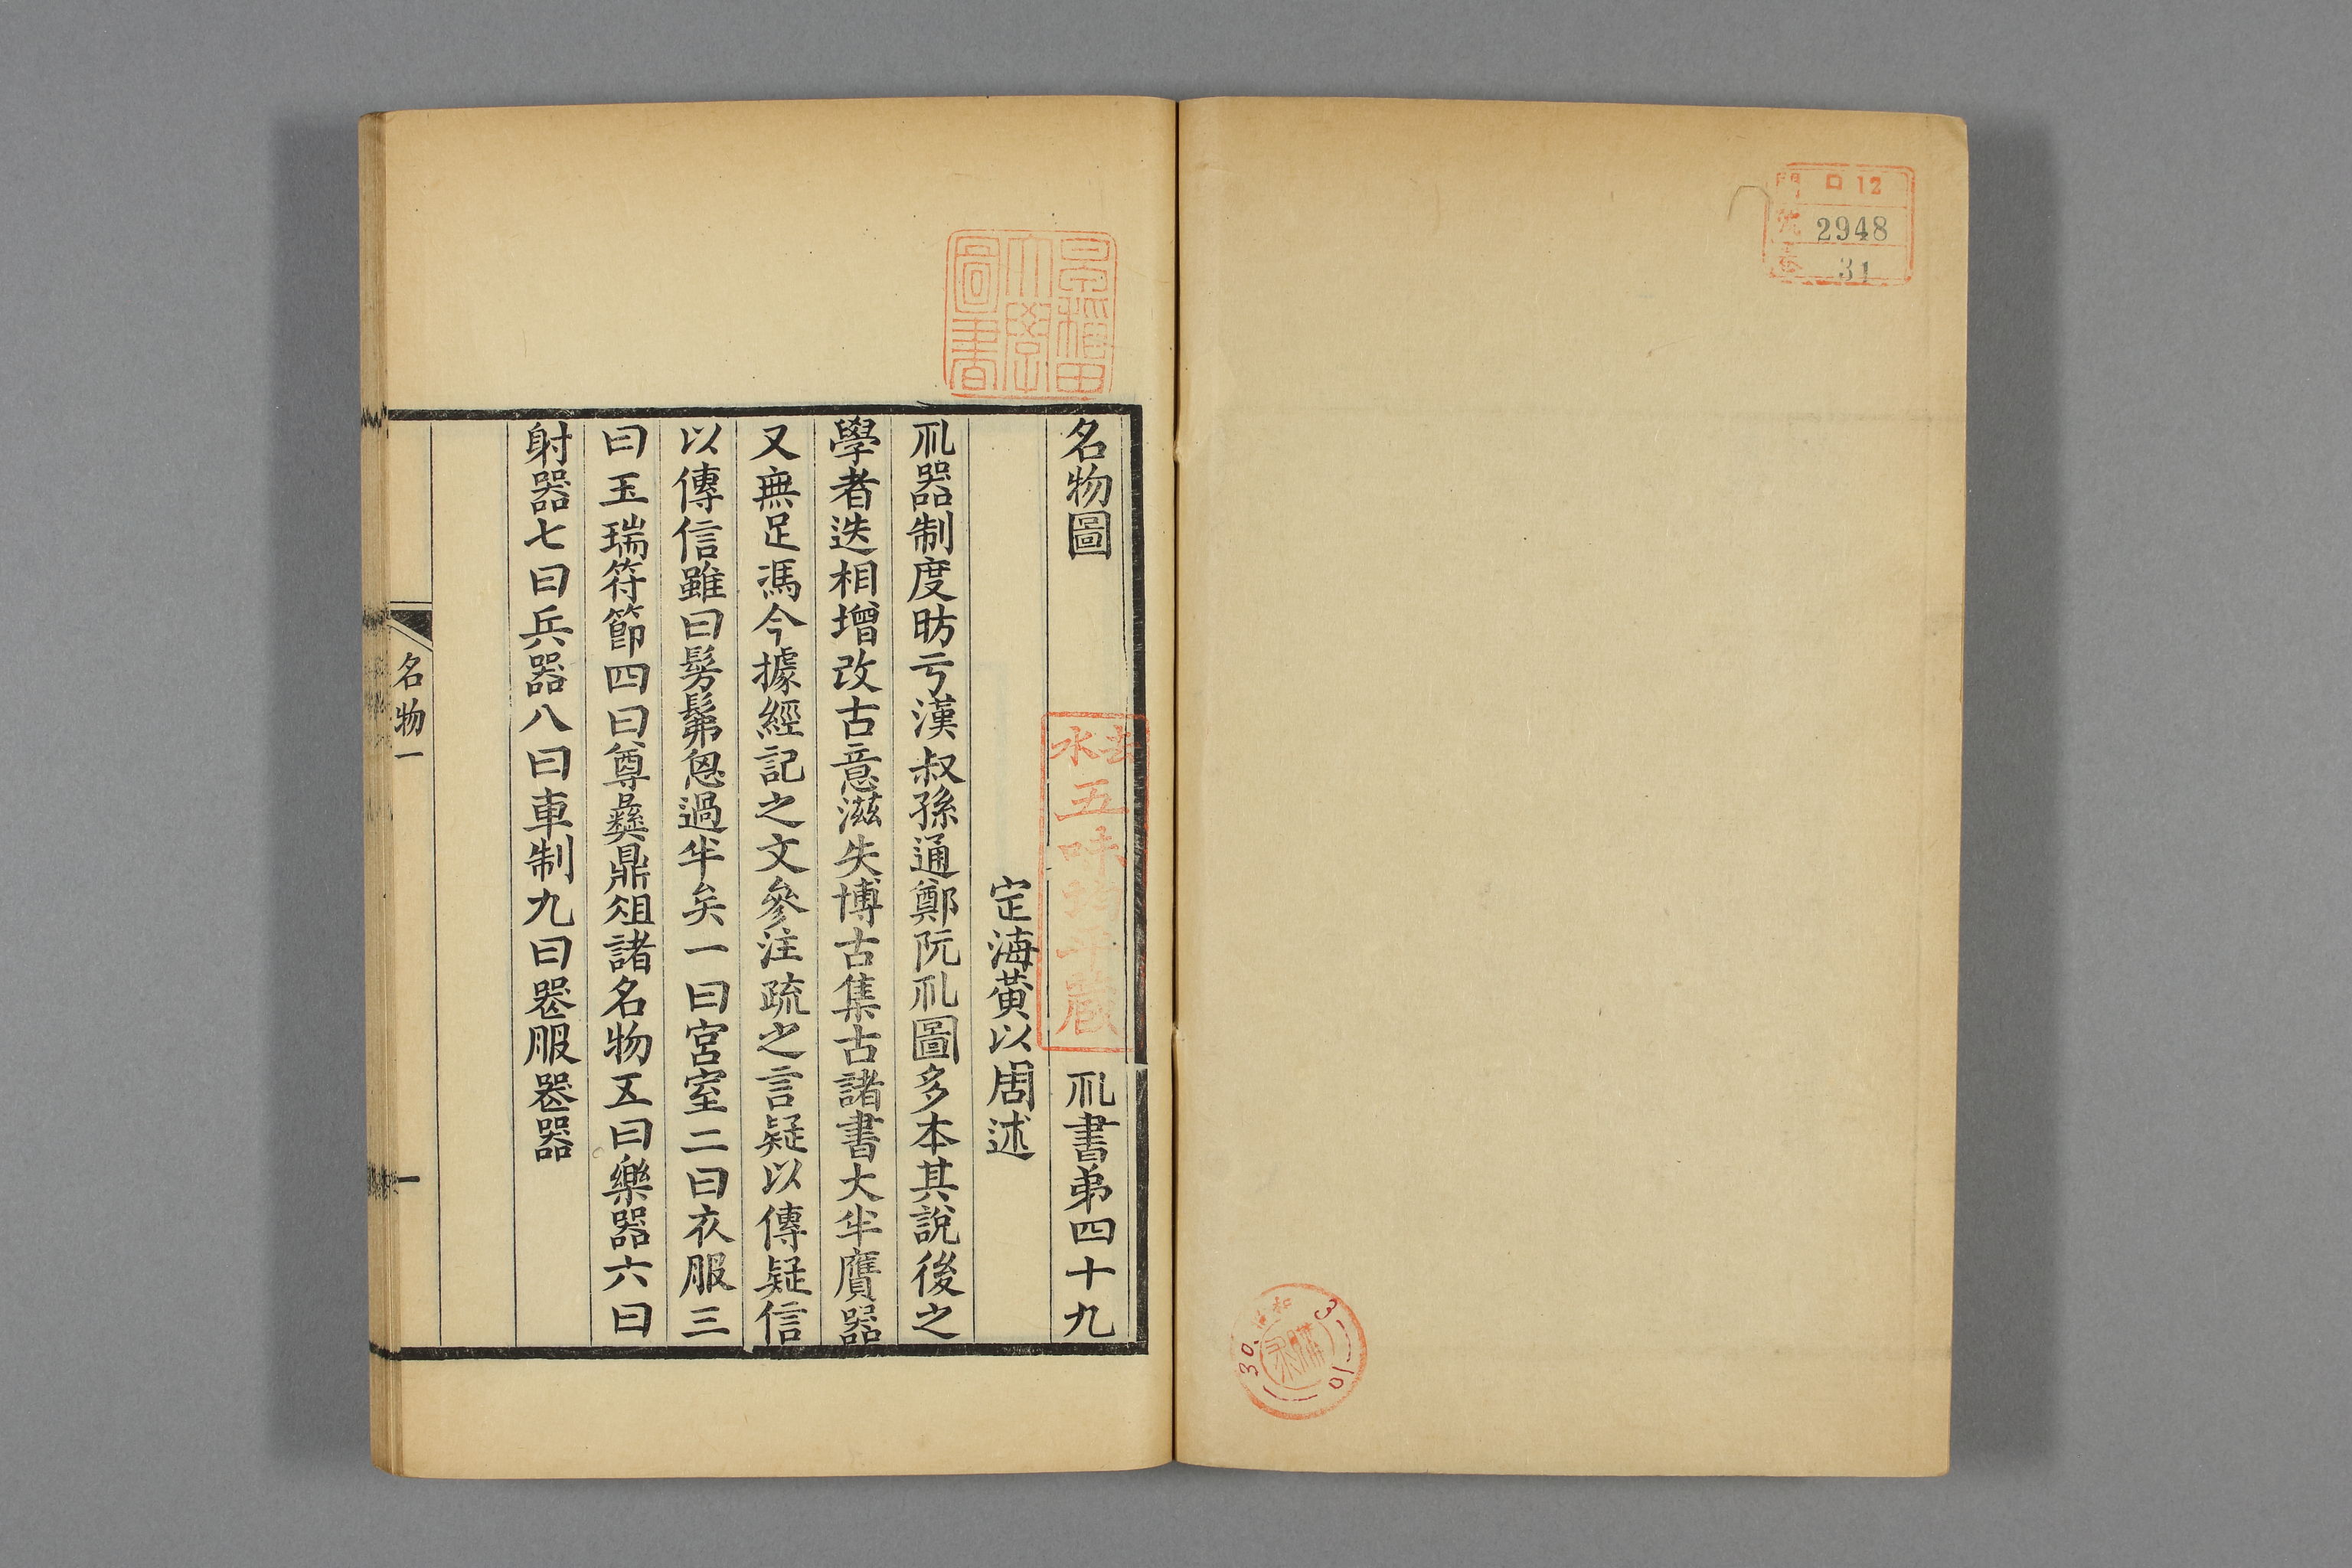 門 ロ 12
號 2948
卷 31
30. 3. 10
早稲田
大學
圖書
五味均平藏
名物圖 𠃞書弟四十九
定海黃以周述
𠃞器制度昉亏漢叔孫通鄭阮𠃞圖多本其說後之
學者迭相增改古意滋失博古集古諸書大半贗器
又無足馮今據經記之文參注疏之言疑以傳疑信
以傳信雖曰髣髴恖過半矣一曰宮室二曰衣服三
曰玉瑞符節四曰尊彝鼎俎諸名物五曰樂器六曰
射器七曰兵器八曰車制九曰喪服喪器
名物一
一